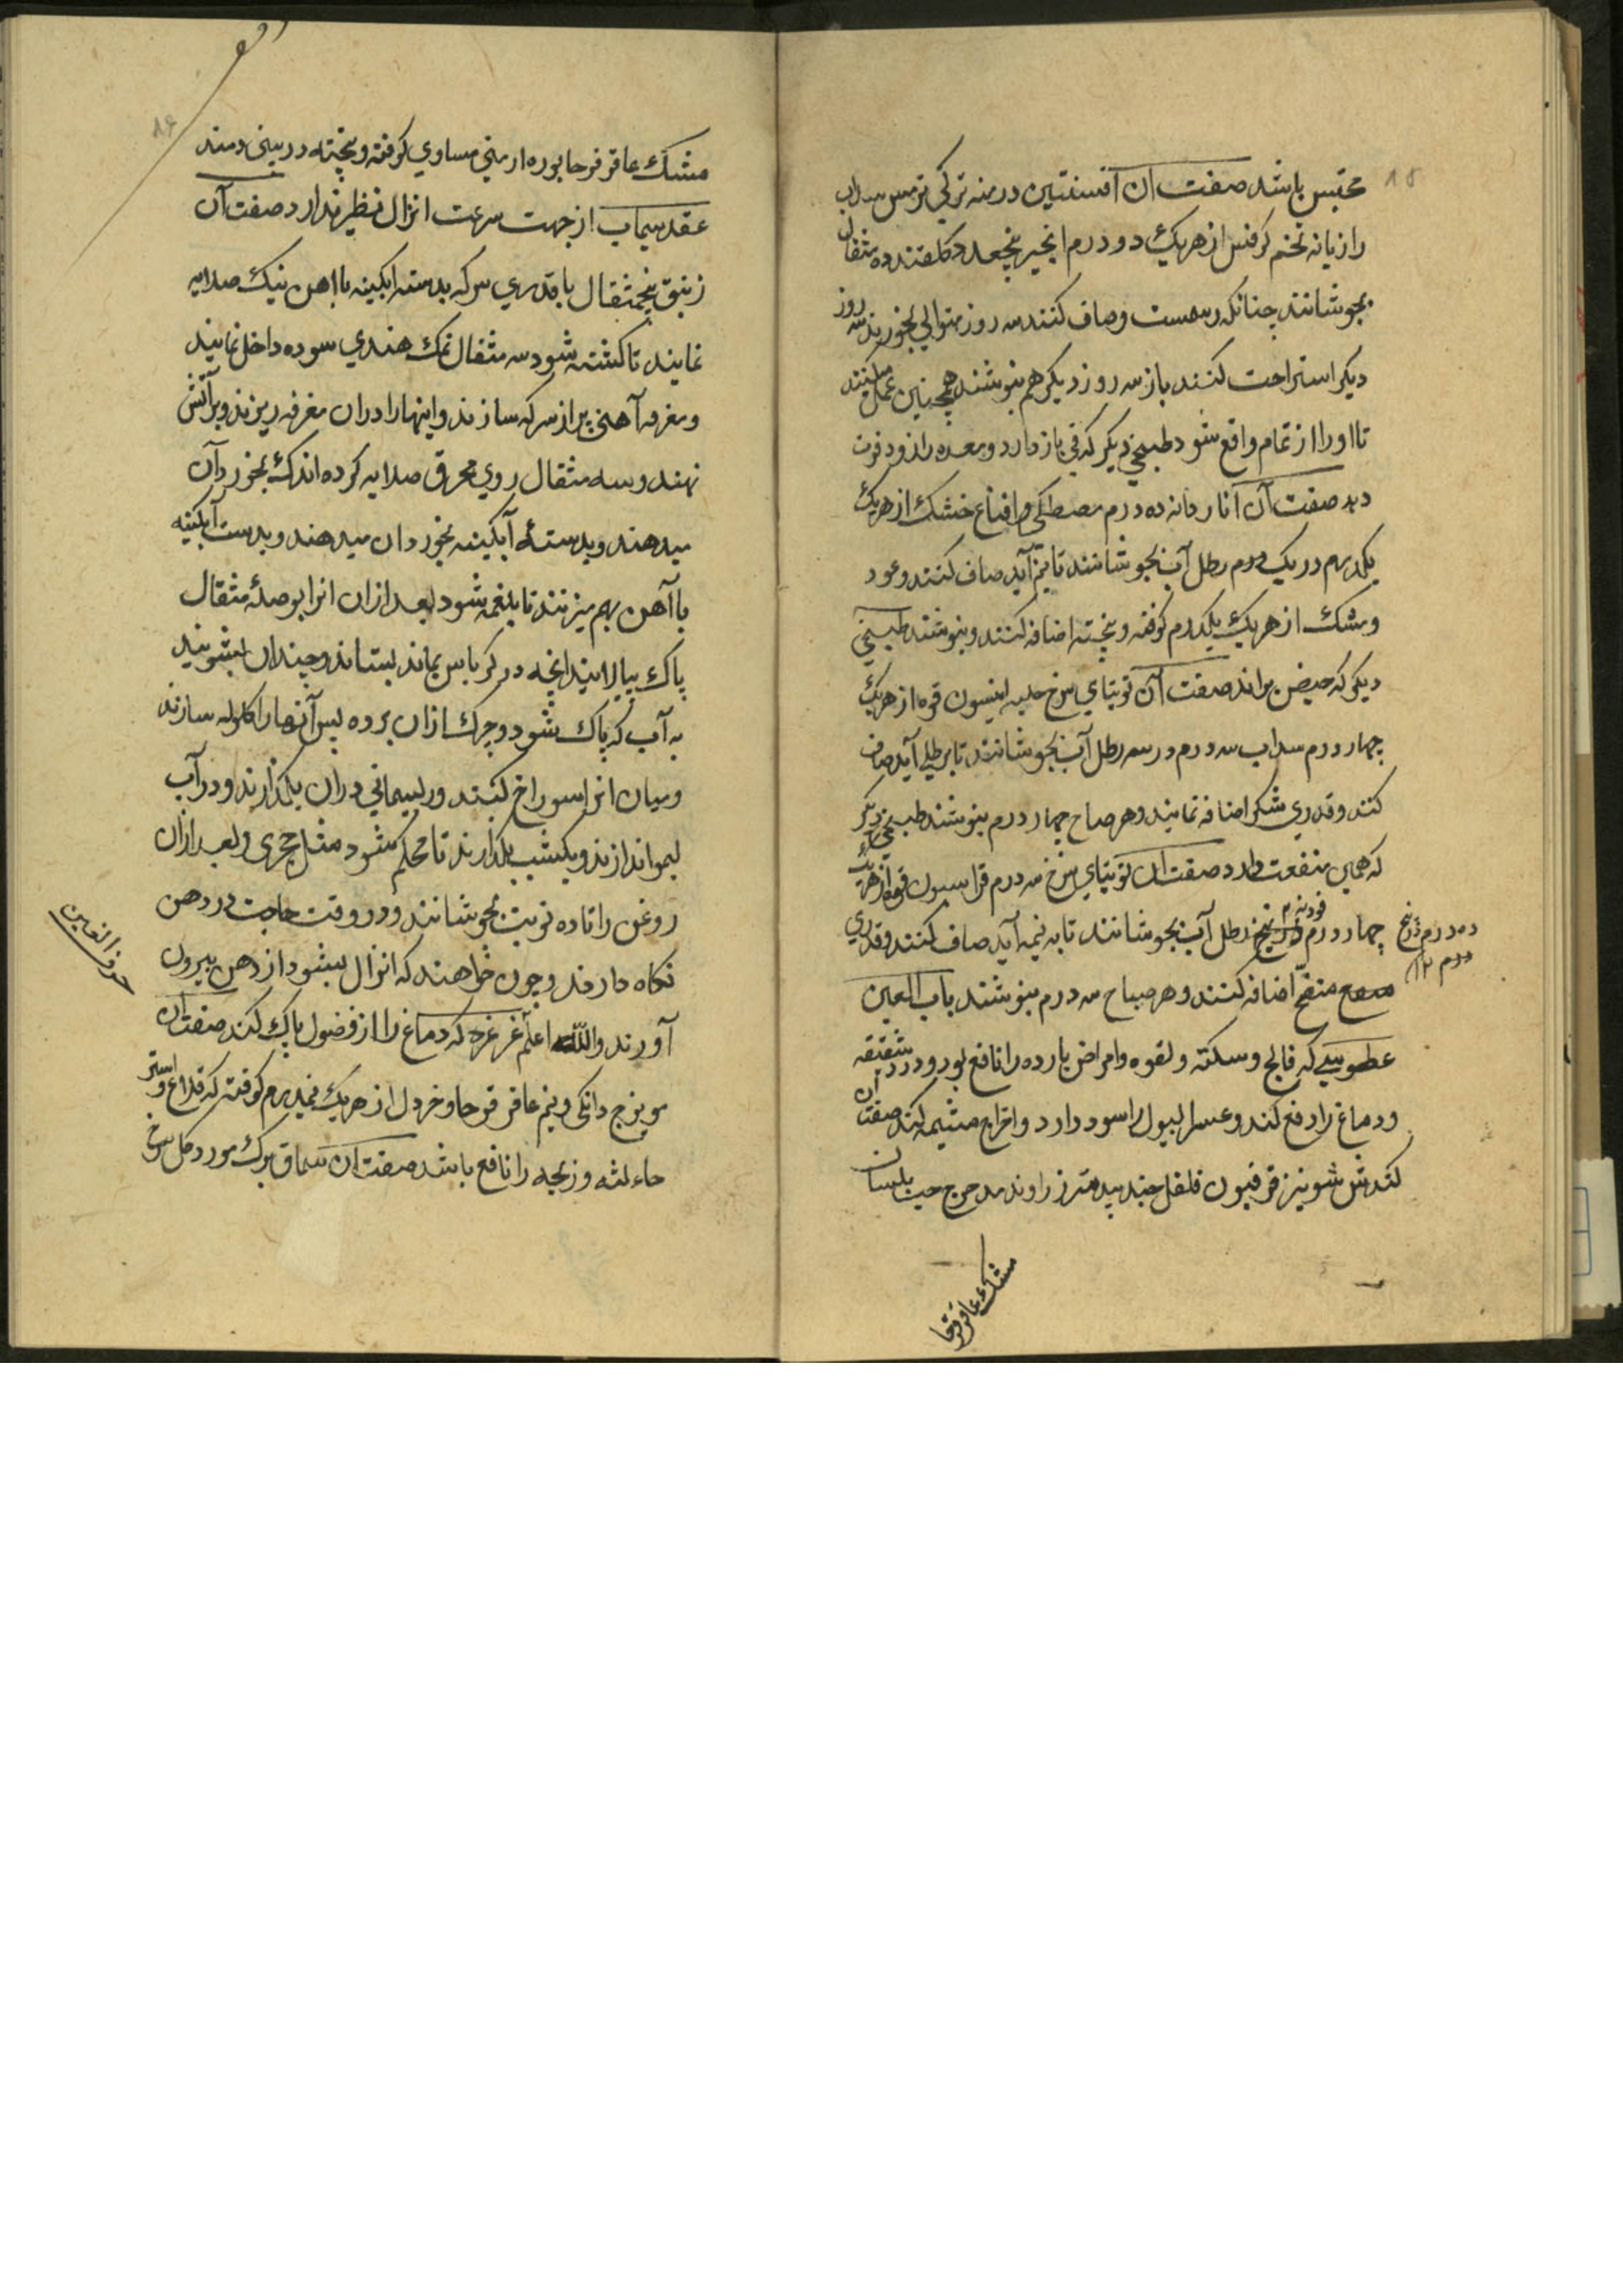 محتبس باشد صفت آن افسنتین درمنه ترکی ترمس سداب
رازیانه تخم کرفس از هریک دو درم انجیر پنجعدد کلقند ده مثقال
بجوشانند چنانکه رسمست و صاف کنند سه روز متوالی بخورند سه روز
دیکر استراحت کنند باز سه روز دیکر هم بنوشند همچنین عمل میکنند
تا اورا از تمام واقع شود طبیخی دیکر که قی باز دارد و معده را زود قوت
دهد صفت آن انار دانه ده درم مصطکی و نعناع خشک از هریک
یکدرهم در یک رطل آب بجوشانند تا بنیم آید صاف کنند و عود
و مشک از هریک یکدرم کوفته و پخته اضافه کنند و بنوشند طبیخی
دیکر که حیض براند صفت آن توبتای سرخ حلبه انیسون قوه از هریک
چهار درم سداب سه درم در سه رطل آب بجوشانند تا برطلی آید صاف
کنند و قدری شکر اضافه نمایند و هر صباح چهار درم بنوشند طبیخی دیکر
که همین منفعت دارد صفت آن توبتای سرخ سه درم فراسیون قوه از هریک
چهار درم فودنه در پنج رطل آب بجوشانند تا به نیمه آید صاف کنند و قدری
منقح اضافه کنند و هر صباح سه درم بنوشند باب العین
عطوسی که فالج و سکته و لقوه و امراض بارده را نافع بود و درد شقیقه
و دماغ را دفع کند و عسر البول را سود دارد و اخراج مشیمه کند صفت آن
کندش شونیز فرفیون فلفل جند بیدستر زراوند مدحرج حب بلسان
مشک عاقرقرحا
مشک عاقرقرحا بوره ارمنی مساوی کوفته و پخته در بینی دمند
عقد سیماب از جهت سرعت انزال نظیر ندارد صفت آن
زیبق پنجمثقال با قدری سرکه بدسته ابکینه با اهن نیک صلایه
نمایند تا کشته شود سه مثقال نمک هندی سوده داخل نمایند
و مغرفه آهنی پر از سرکه سازند و اینها را دران مغرفه ریزند و بر آتش
نهند و سه مثقال روی محرق صلایه کرده اندک بخورد آن
میدهند و بدسته آبکینه بخورد ان میدهند و بدست آبکینه
با آهن بهم میزنند تا بلغمه شود بعد ازان انرا بوصله مثقال
پاک بپالایند انچه در کرباس بماند بستانند و چندان بشویند
به آب که پاک شود و چرک ازان برده پس آنها را کلوله سازند
و میان انرا سوراخ کنند و ریسمانی دران بکذارند و در آب
لیمو اندازند و یکشب بکذارند تا محکم شود مثل حجری و بعد ازان
روغن را تا ده نوبت بجوشانند و در وقت حاجت در دهن
نکاه دارند و چون خواهند که انزال بشود از دهن بیرون
آورند والله اعلم غرغره که دماغ را از فضول پاک کند صفت آن
مویزج دانکی و نیم عاقرقرحا و خردل از هریک نیمدرم کوفته که قلاع و
حاء لثه و زنجه را نافع باشد صفت آن سماق برک مورد کل سرخ
حرف العین